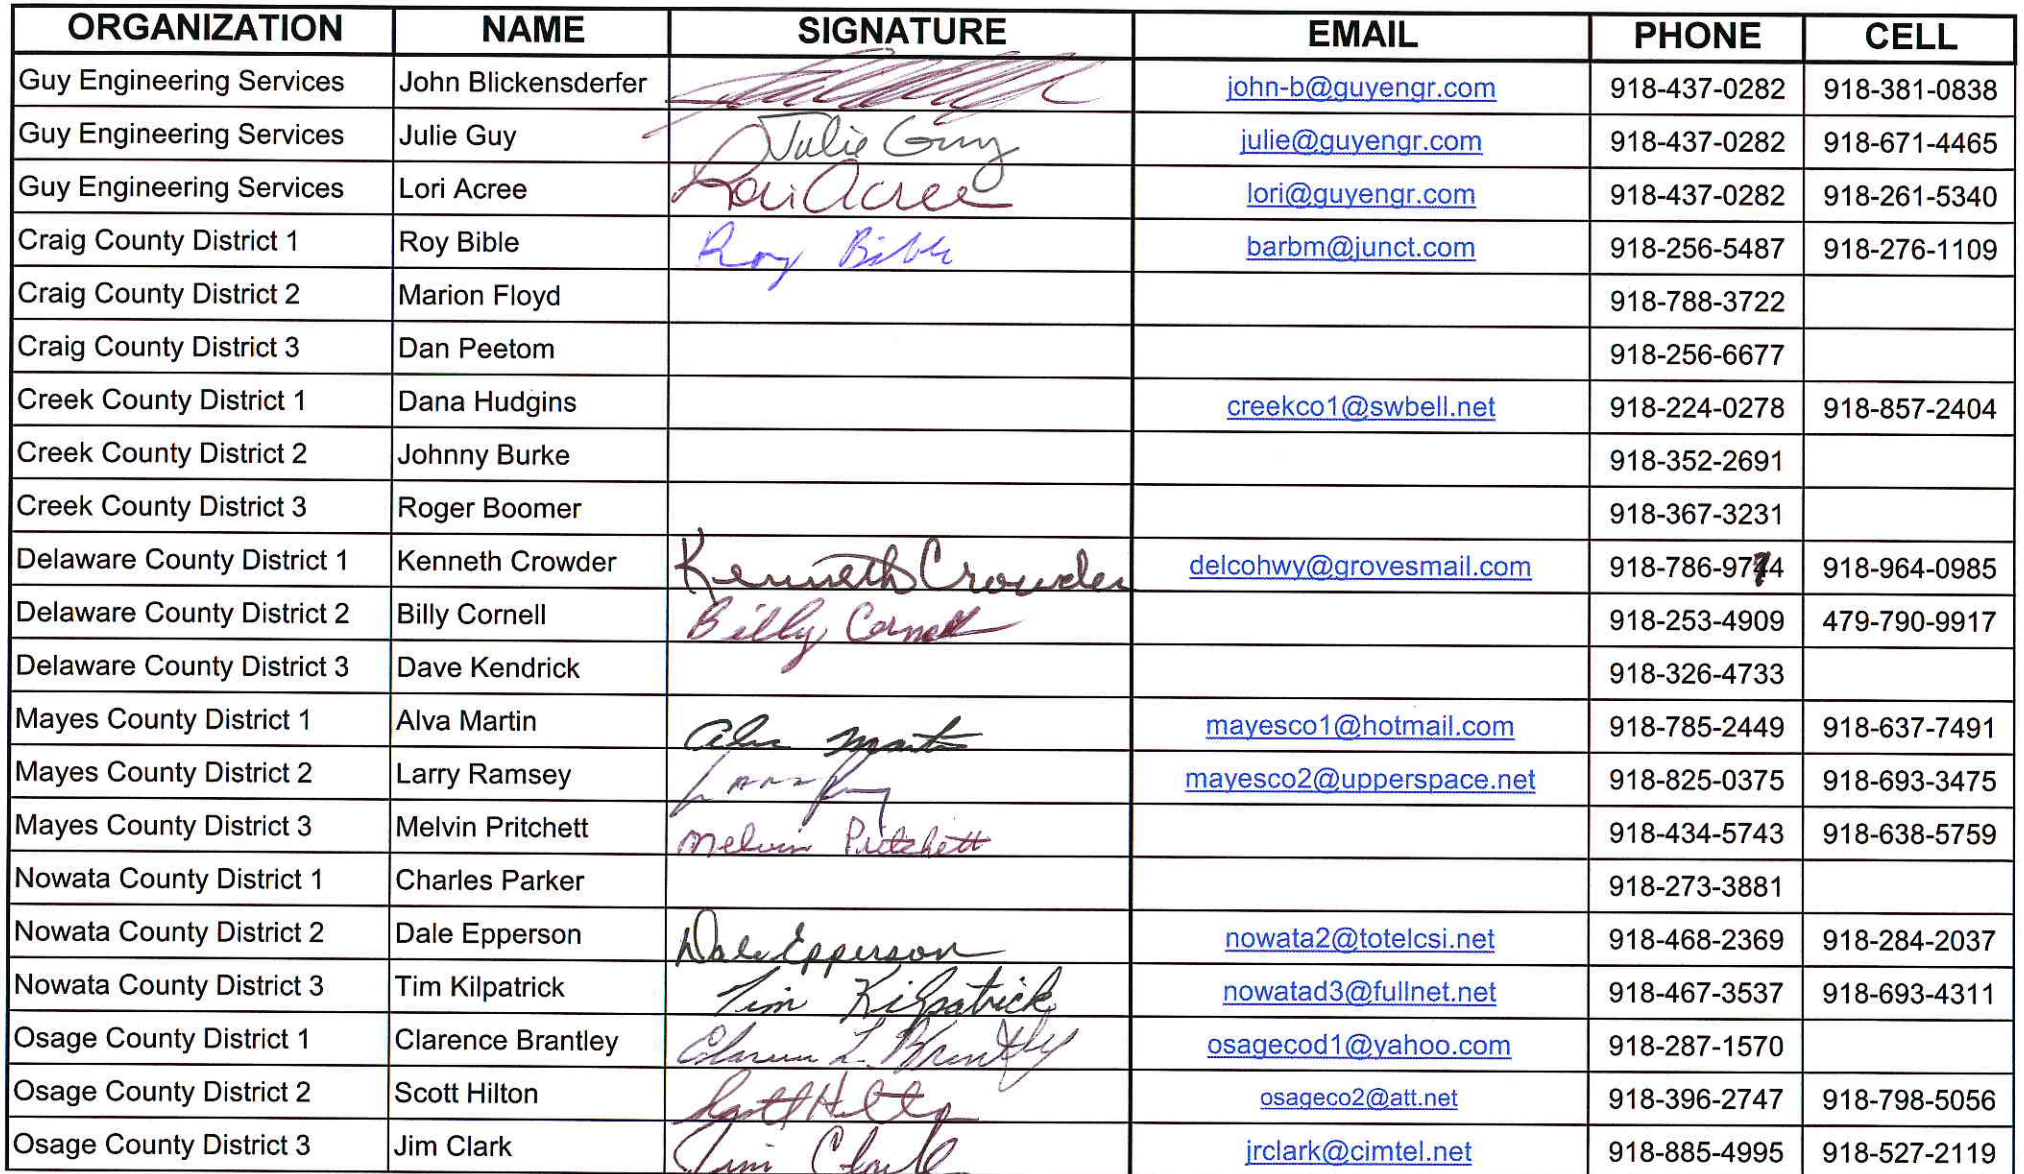 ORGANIZATION NAME SIGNATURE EMAIL PHONE CELL
Guy Engineering Services John Blickensderfer john-b@guyengr.com 918-437-0282 918-381-0838
Guy Engineering Services Julie Guy Julie Guy julie@guyengr.com 918-437-0282 918-671-4465
Guy Engineering Services Lori Acree Lori Acree lori@guyengr.com 918-437-0282 918-261-5340
Craig County District 1 Roy Bible Roy Bible barbm@junct.com 918-256-5487 918-276-1109
Craig County District 2 Marion Floyd 918-788-3722
Craig County District 3 Dan Peetom 918-256-6677
Creek County District 1 Dana Hudgins creekco1@swbell.net 918-224-0278 918-857-2404
Creek County District 2 Johnny Burke 918-352-2691
Creek County District 3 Roger Boomer 918-367-3231
Delaware County District 1 Kenneth Crowder Kenneth Crowder delcohwy@grovesmail.com 918-786-9774 918-964-0985
Delaware County District 2 Billy Cornell Billy Cornell 918-253-4909 479-790-9917
Delaware County District 3 Dave Kendrick 918-326-4733
Mayes County District 1 Alva Martin Alva Martin mayesco1@hotmail.com 918-785-2449 918-637-7491
Mayes County District 2 Larry Ramsey mayesco2@upperspace.net 918-825-0375 918-693-3475
Mayes County District 3 Melvin Pritchett Melvin Pritchett 918-434-5743 918-638-5759
Nowata County District 1 Charles Parker 918-273-3881
Nowata County District 2 Dale Epperson Dale Epperson nowata2@totelcsi.net 918-468-2369 918-284-2037
Nowata County District 3 Tim Kilpatrick Tim Kilpatrick nowatad3@fullnet.net 918-467-3537 918-693-4311
Osage County District 1 Clarence Brantley Clarence L. Brantley osagecod1@yahoo.com 918-287-1570
Osage County District 2 Scott Hilton Scott Hilton osageco2@att.net 918-396-2747 918-798-5056
Osage County District 3 Jim Clark Jim Clark jrclark@cimtel.net 918-885-4995 918-527-2119